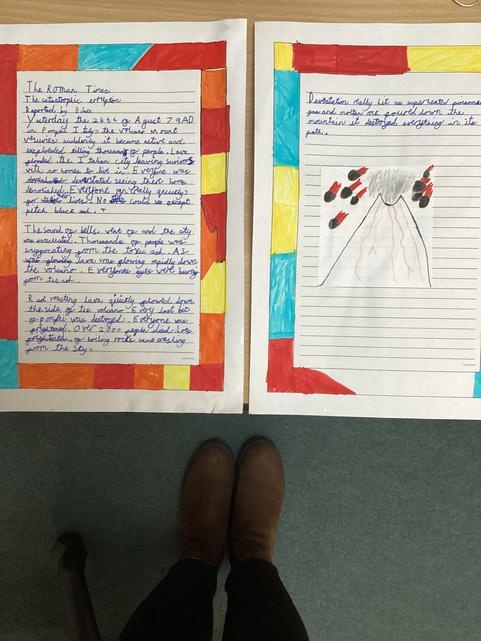 The Roman Times
The catastrophic eruption
Reported by
Yesterday the 24th of August 79AD
in Pompeii Italy the volcano Mount
Vesuvius suddenly it became active and
exploded killing thousands of people. Lava
flooded the Italian city leaving
with no homes to live in. Everyone was
devastated seeing there home
demolished. Everyone ran really quickly
for lives. No one could see except
pitch black ash.
The sound of bells was of and the city
was evacuated. Thousands of people was
from the toxic ash. As
glowing lava was flowing rapidly down
the volcano. Everyones eyes were
from the ash.
Red roasting lava quickly flowed down
the side of the volcano. Every last bit
of pompeii was destroyed. Everyone was
frightened. Over 2000 people died. Lots
of boiling rocks came crashing
from the sky.
Devastation really hit as superheated
gas and molten poured down the
mountain it destroyed everything in its
path.